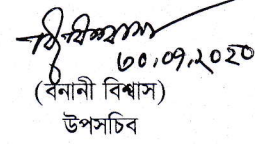 ৩০.০৭.২০২০
(বনানী বিশ্বাস)
উপসচিব